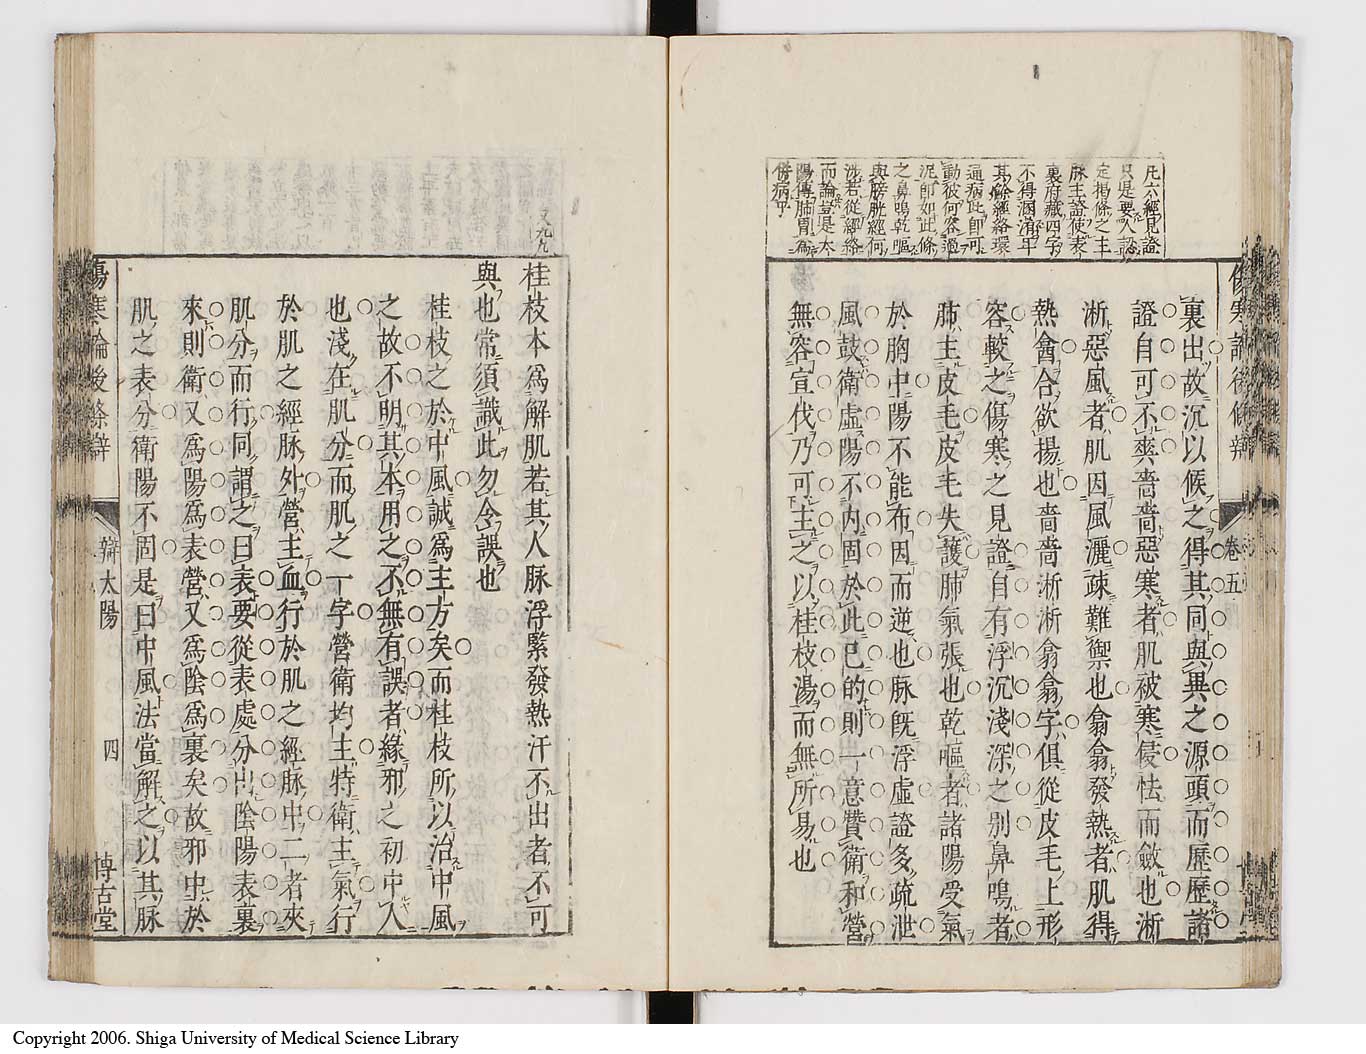 凡六經見證
只是要人認
定提條之主
脉主證使表
裏府藏四字
不得溷淆乎
其餘經絡環
逼病此卽可
動彼何容過
泥卽如此條
之鼻鳴乾嘔
與膀胱經何
涉若從經絡
而論豈是太
陽傳肺胃爲
併病乎
傷寒論後條辨
卷五
裏出故沉以候之得其同與異之源頭而歷歷諸
證自可不爽嗇嗇惡寒者肌被寒侵怯而斂也淅
淅惡風者肌因風灑疎難禦也翕翕發熱者肌得
熱會合欲揚也嗇嗇淅淅翕翕字俱從皮毛上形
容較之傷寒之見證自有浮沉淺深之別鼻鳴者
肺主皮毛皮毛失護肺氣張也乾嘔者諸陽受氣
於胸中陽不能布因而逆也脉旣浮虛證多疏泄
風鼓衛虛陽不内固於此已的則一意贊衛和營
無容宣伐乃可主之以桂枝湯而無所易也
桂枝本爲解肌若其人脉浮緊發熱汗不出者不可
與也常須識此勿令誤也
桂枝之於中風誠爲主方矣而桂枝所以治中風
之故不明其本用之不無有誤者緣邪之初中人
也淺在肌分而肌之一字營衛均主特衛主氣行
於肌之經脉外營主血行於肌之經脉中二者夾
肌分而行同謂之曰表要從表處分出陰陽表裏
來則衛又爲陽爲表營又爲陰爲裏矣故邪中於
肌之表分衛陽不固是曰中風法當解之以其脉
傷寒論後條辨
辯太陽
四
博古堂
Copyright 2006. Shiga University of Medical Science Library